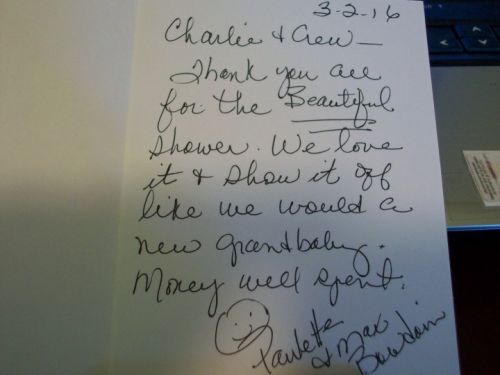 3-2-16
Charlie & Crew—
Thank you all
for the Beautiful
Shower. We love
it & show it off
like we would a
new grandbaby.
Money well spent.
Paulette
& Max